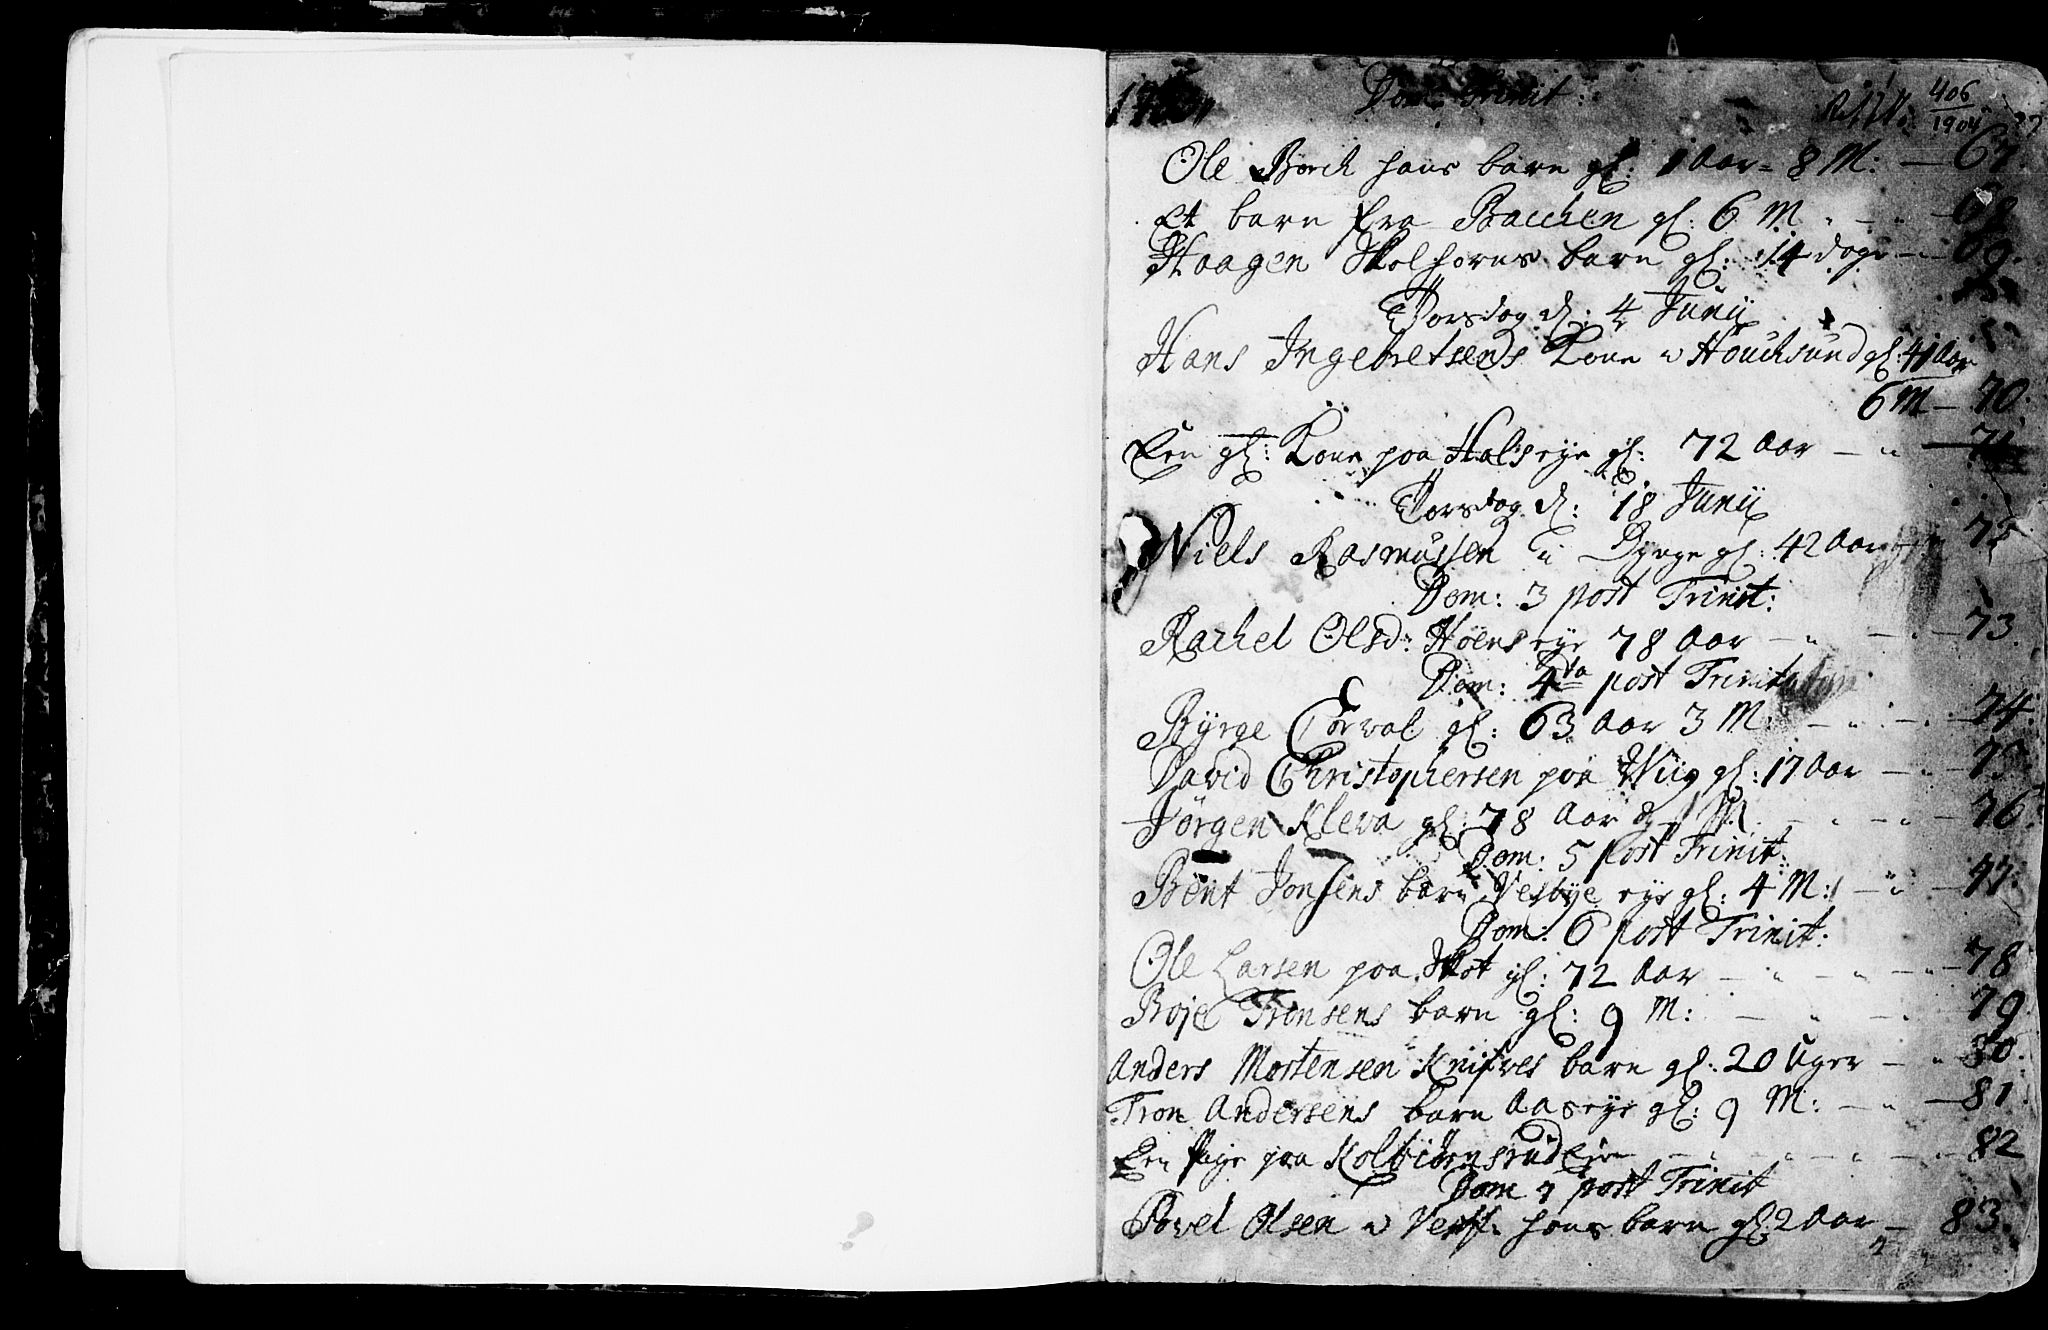 Dom: Trinit: 406
1904
Ole Borch hans barn gl: 1 Aar - 8 M: — 67.
Et barn fra Bacchen gl: 6 M — 68
Haagen Skolhorns barn gl: 14 dage — 69.
Torsdag d: 4 Junij
Hans Ingebretsens Kone v Houchsund gl: 41 Aar
6 M — 70.
Een gl: Kone paa Hals eye gl: 72 Aar — 71
Torsdag d: 18 Junij
Niels Rasmussen gl: 42 Aar 72
Dom: 3 post Trinit:
Rachel Olsd: Høens eye 78 Aar — 73
Dom: 4ta post Trinit
Byrge Corval gl: 63 Aar 3 M: — 74.
David Christophersen paa Wiig gl: 17 Aar — 75
Jørgen Kleva gl: 78 Aar & 1 M. — 76.
Dom: 5 post Trinit:
Bent Jonsens barn Vesbye eye gl: 4 M: — 77.
Dom: 6 post Trinit:
Ole Larsen paa Skot gl: 72 Aar — 78
Boje Tronsens barn gl: 9 M: — 79
Anders Mortensen Knifves barn gl: 20 Uger — 80.
Tron Andersens barn Aas eye gl: 9 M: — 81.
Een Pige paa Kolbiørnsrud Eje — 82
Dom 7 post Trinit
Povel Olsen v hans barn gl: 2 Aar — 83.